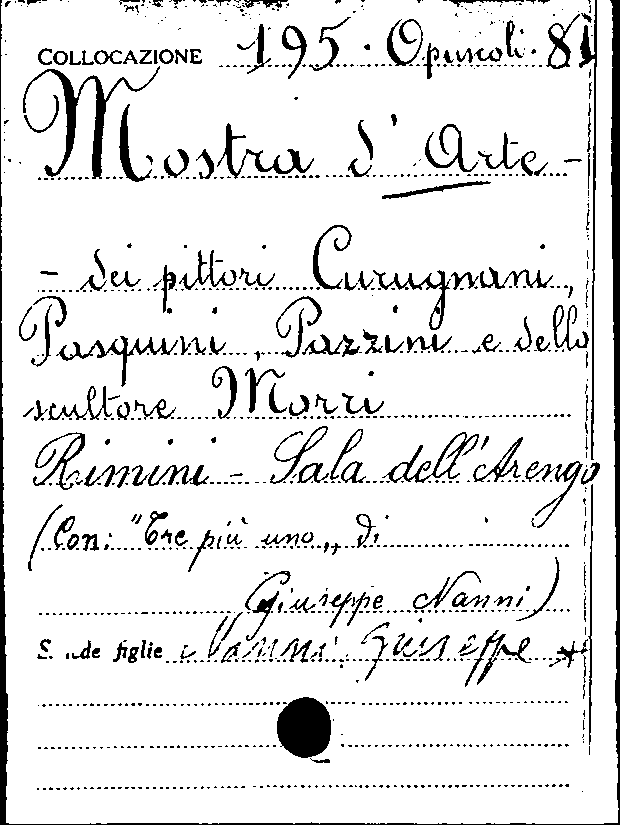 COLLOCAZIONE 195. Opuscoli. 81
Mostra d'Arte -
- dei pittori Curugnani,
Pasquini, Pazzini e dello
scultore Morri
Rimini - Sala dell'Arengo
(Con: "Tre più uno„ di
Giuseppe Nanni)
S. de figlie Nanni, Giuseppe *